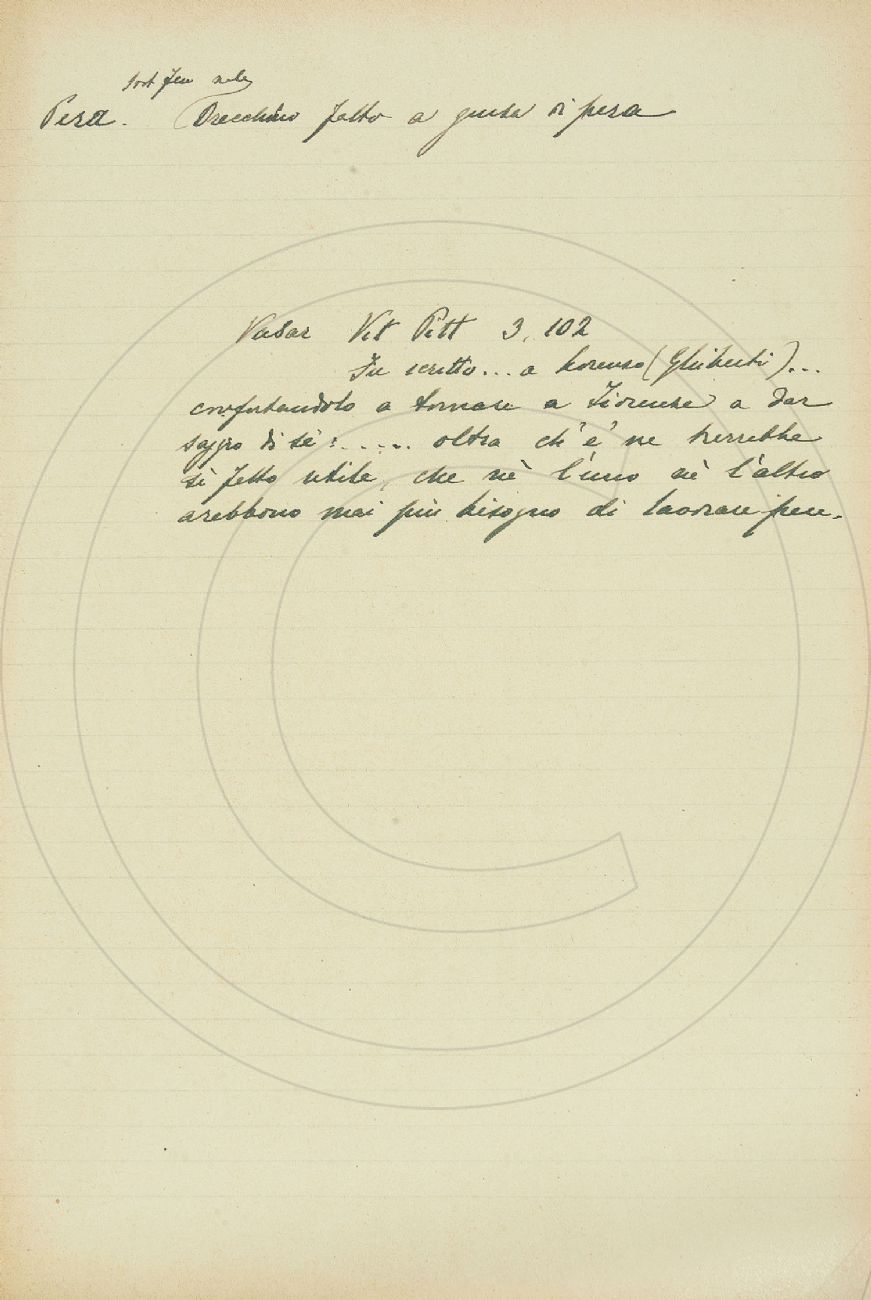 Sost. fem
Pera. Orecchino fatto a guisa di pera
Vasar Vit Pitt 3, 102
Fu scritto... a Lorenzo (Ghiberti)...
confortandolo a tornare a Fiorenza a dar
saggio di sè:..... oltra ch'e' ne trerrebbe
sì fatto utile, che nè l'uno nè l'altro
arebbono mai più bisogno di lavorare pere.